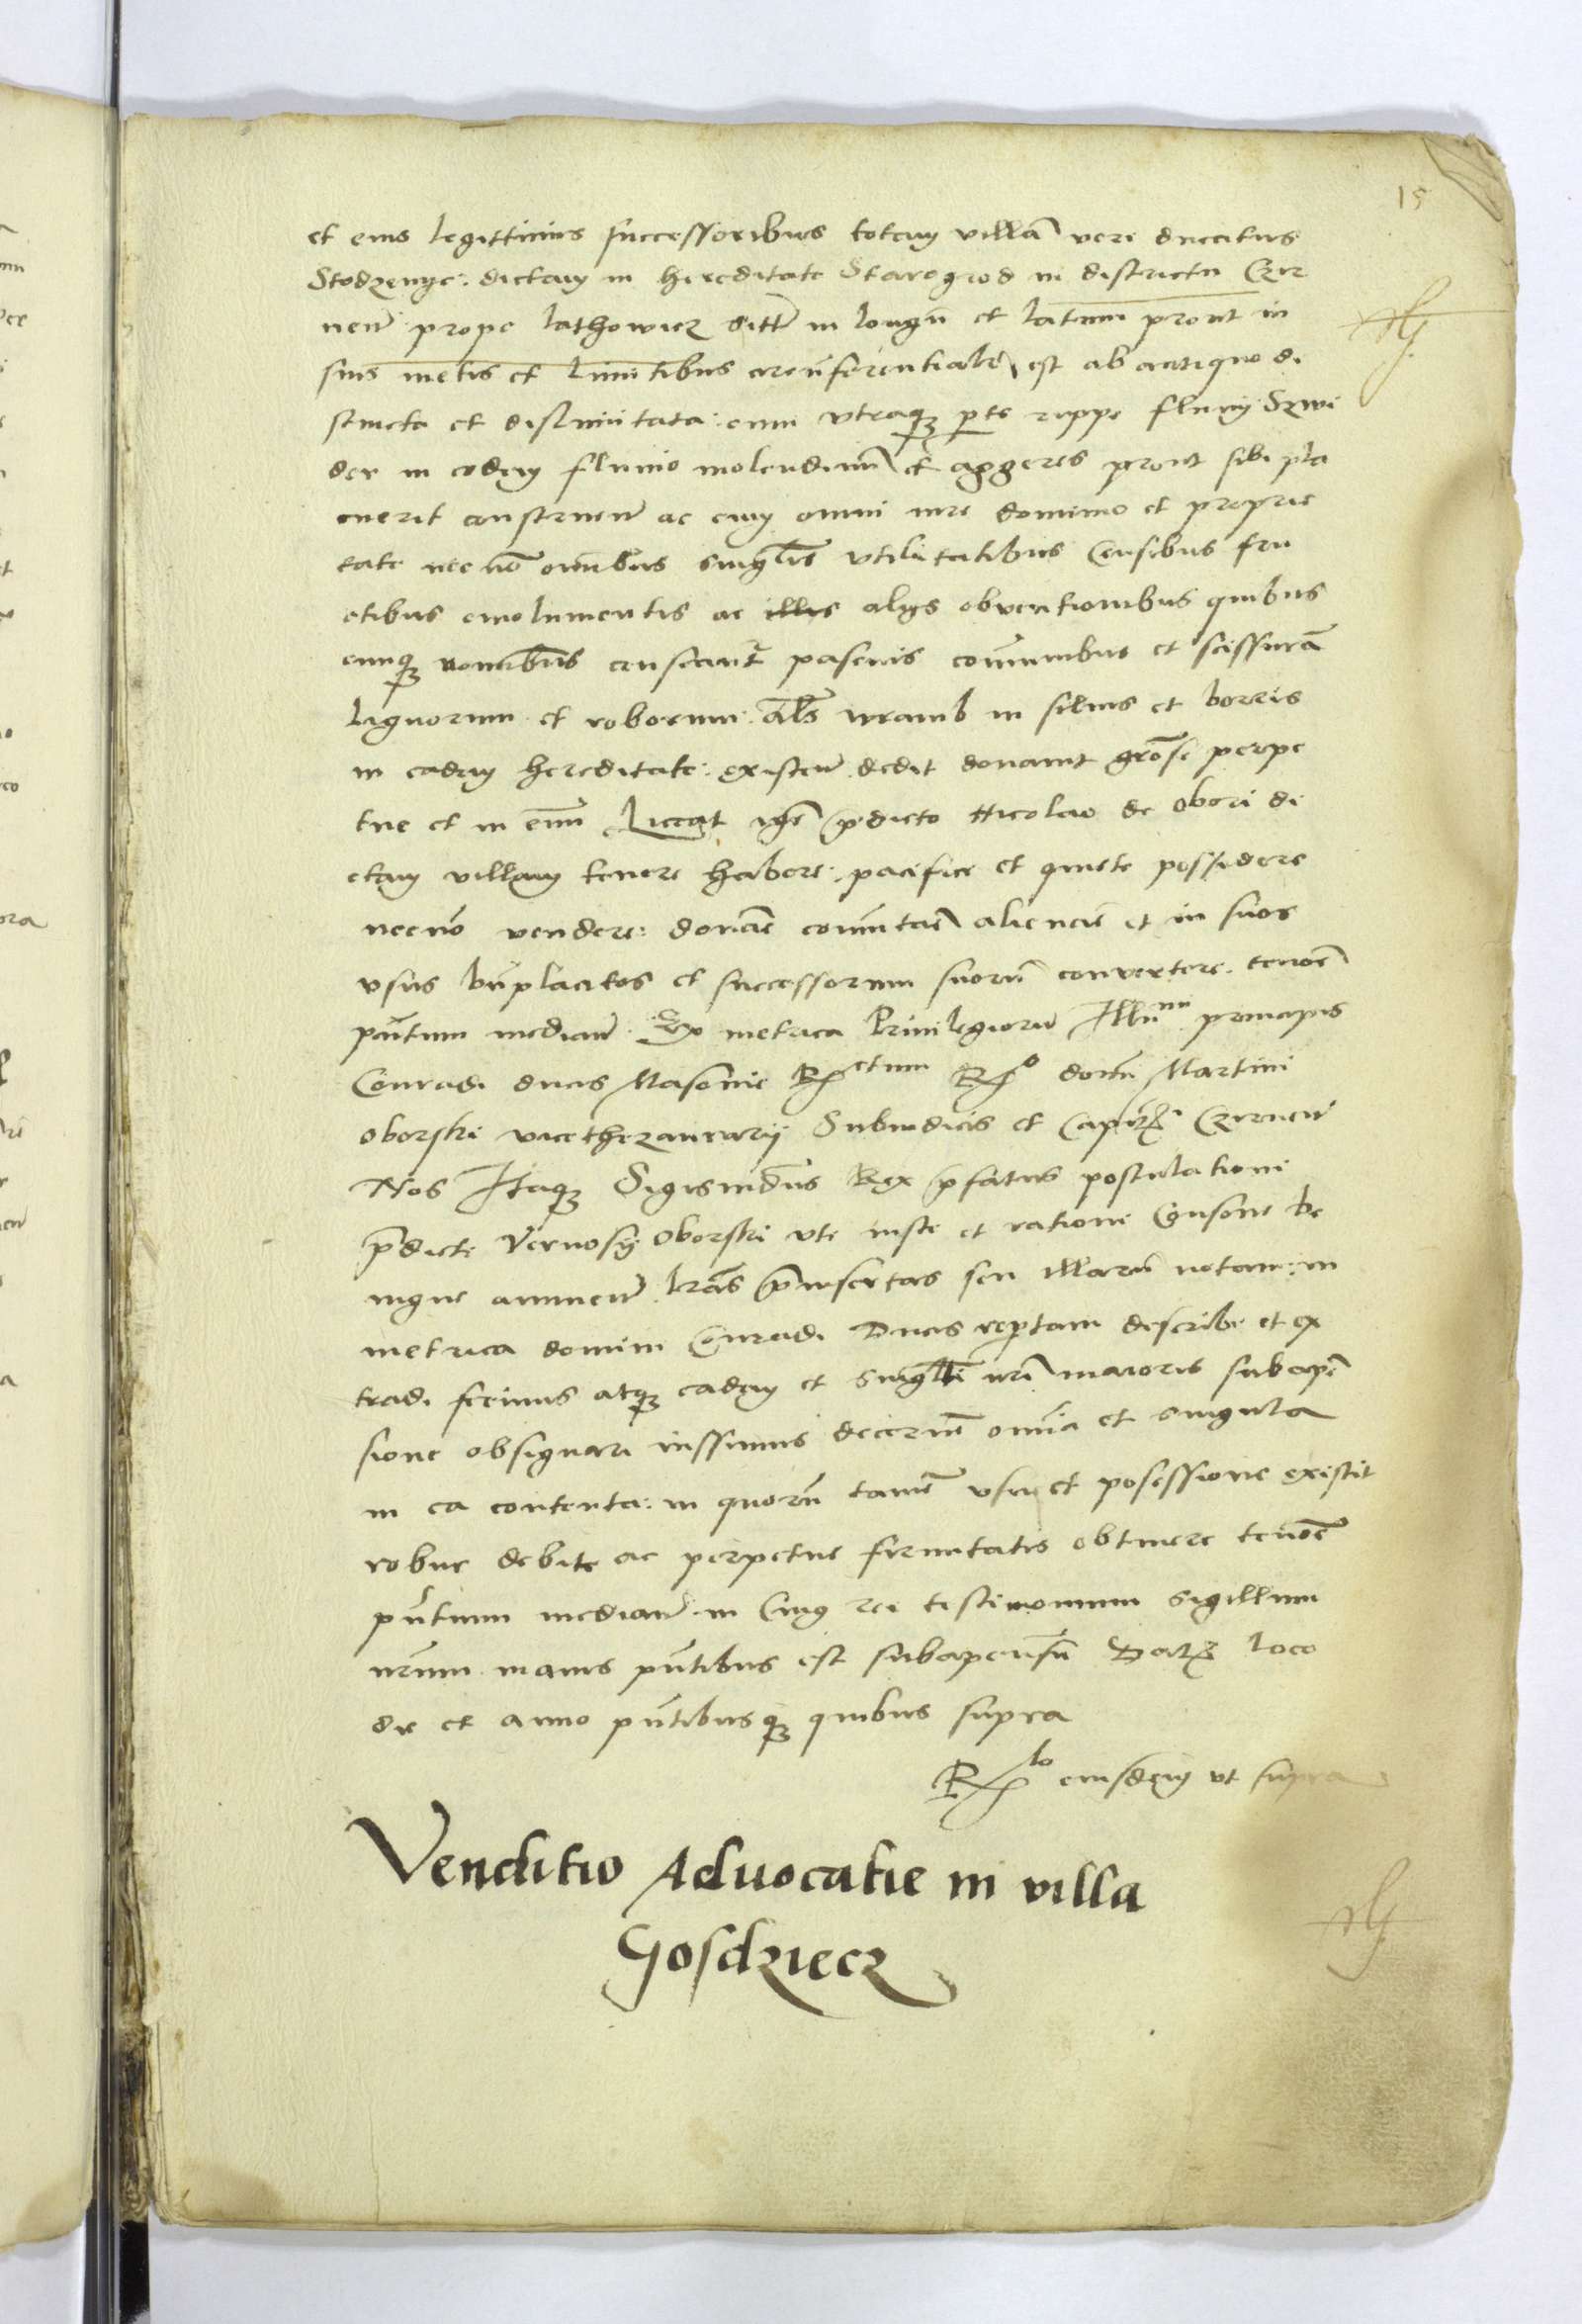 15
et eius legittimis successoribus totam villã veri ducatus
Stodzenye: dictam in hereditate Starogrod in districtu Czir
nen̄ prope lathowicz sitt̄ in longū et latum prout in
suis metis et limitibus circūferentialit̄ est ab antiquo di
stincta et dislimitata: cum vtraqꝫ parte rippe fluvij Szwi
der in eodem fluvio molendinū et aggeres prout sibi pla
cuerit construen̄ ac cum omni iure dominio et proprie
tate nec nō omibus singłis vtilitatibus Censibus fru
ctibus emolumentis ac illis alijs obventionibus quibus
cunqꝫ nominibus censeant̄ pascuis cōmunibus et scissurã
lignorum et roborum: als wramb in silvis et borris
in eadem hereditate: existen̄ dedit donavit grōse perpe
tue et in euū Liceat igr̄ p̄dicto Nicolao de Obori di
ctam villam tenere habere: pacifice et quiete possidere
necnō vendere: donãe comūtãe alienãe et in suos
vsus bn̄placitos et successorum suorū convertere. tenoē
pn̄tium median̄ Ex metrica Privilegiorū Illūmi principis
Conradi ducis Masovie Rctum Ro domī Martini
Oborski vicethezaurarij Subiudicis et Capitꝫ Czirnen̄
Nos Itaqꝫ Sigismūdus Rex p̄fatus postulationi
p̄dicte Oborski vte iuste et rationi Consone be
nigne annuen̄ lrãs p̄insertas seu illarū notam: in
metrica domini Conradi Ducis rep̄tam describi et ex
tradi fecimus atqꝫ eadem et sigilli nrī maioris subapē
sione obsignari iussimus decernē omīa et singula
in ea contenta: in quorū tamē vsu et posessione existit
robur debite ac perpetue firmitatis obtinere tenoē
pn̄tium median̄ in Cuiꝰ rei testimonium sigillum
nrūm maius pn̄tibus est subapensū Datꝫ loco
die et anno pn̄tibusqꝫ quibus supra
Rlo eiusdem vt supra
Venditio Advocatie in villa
Gosdziecz